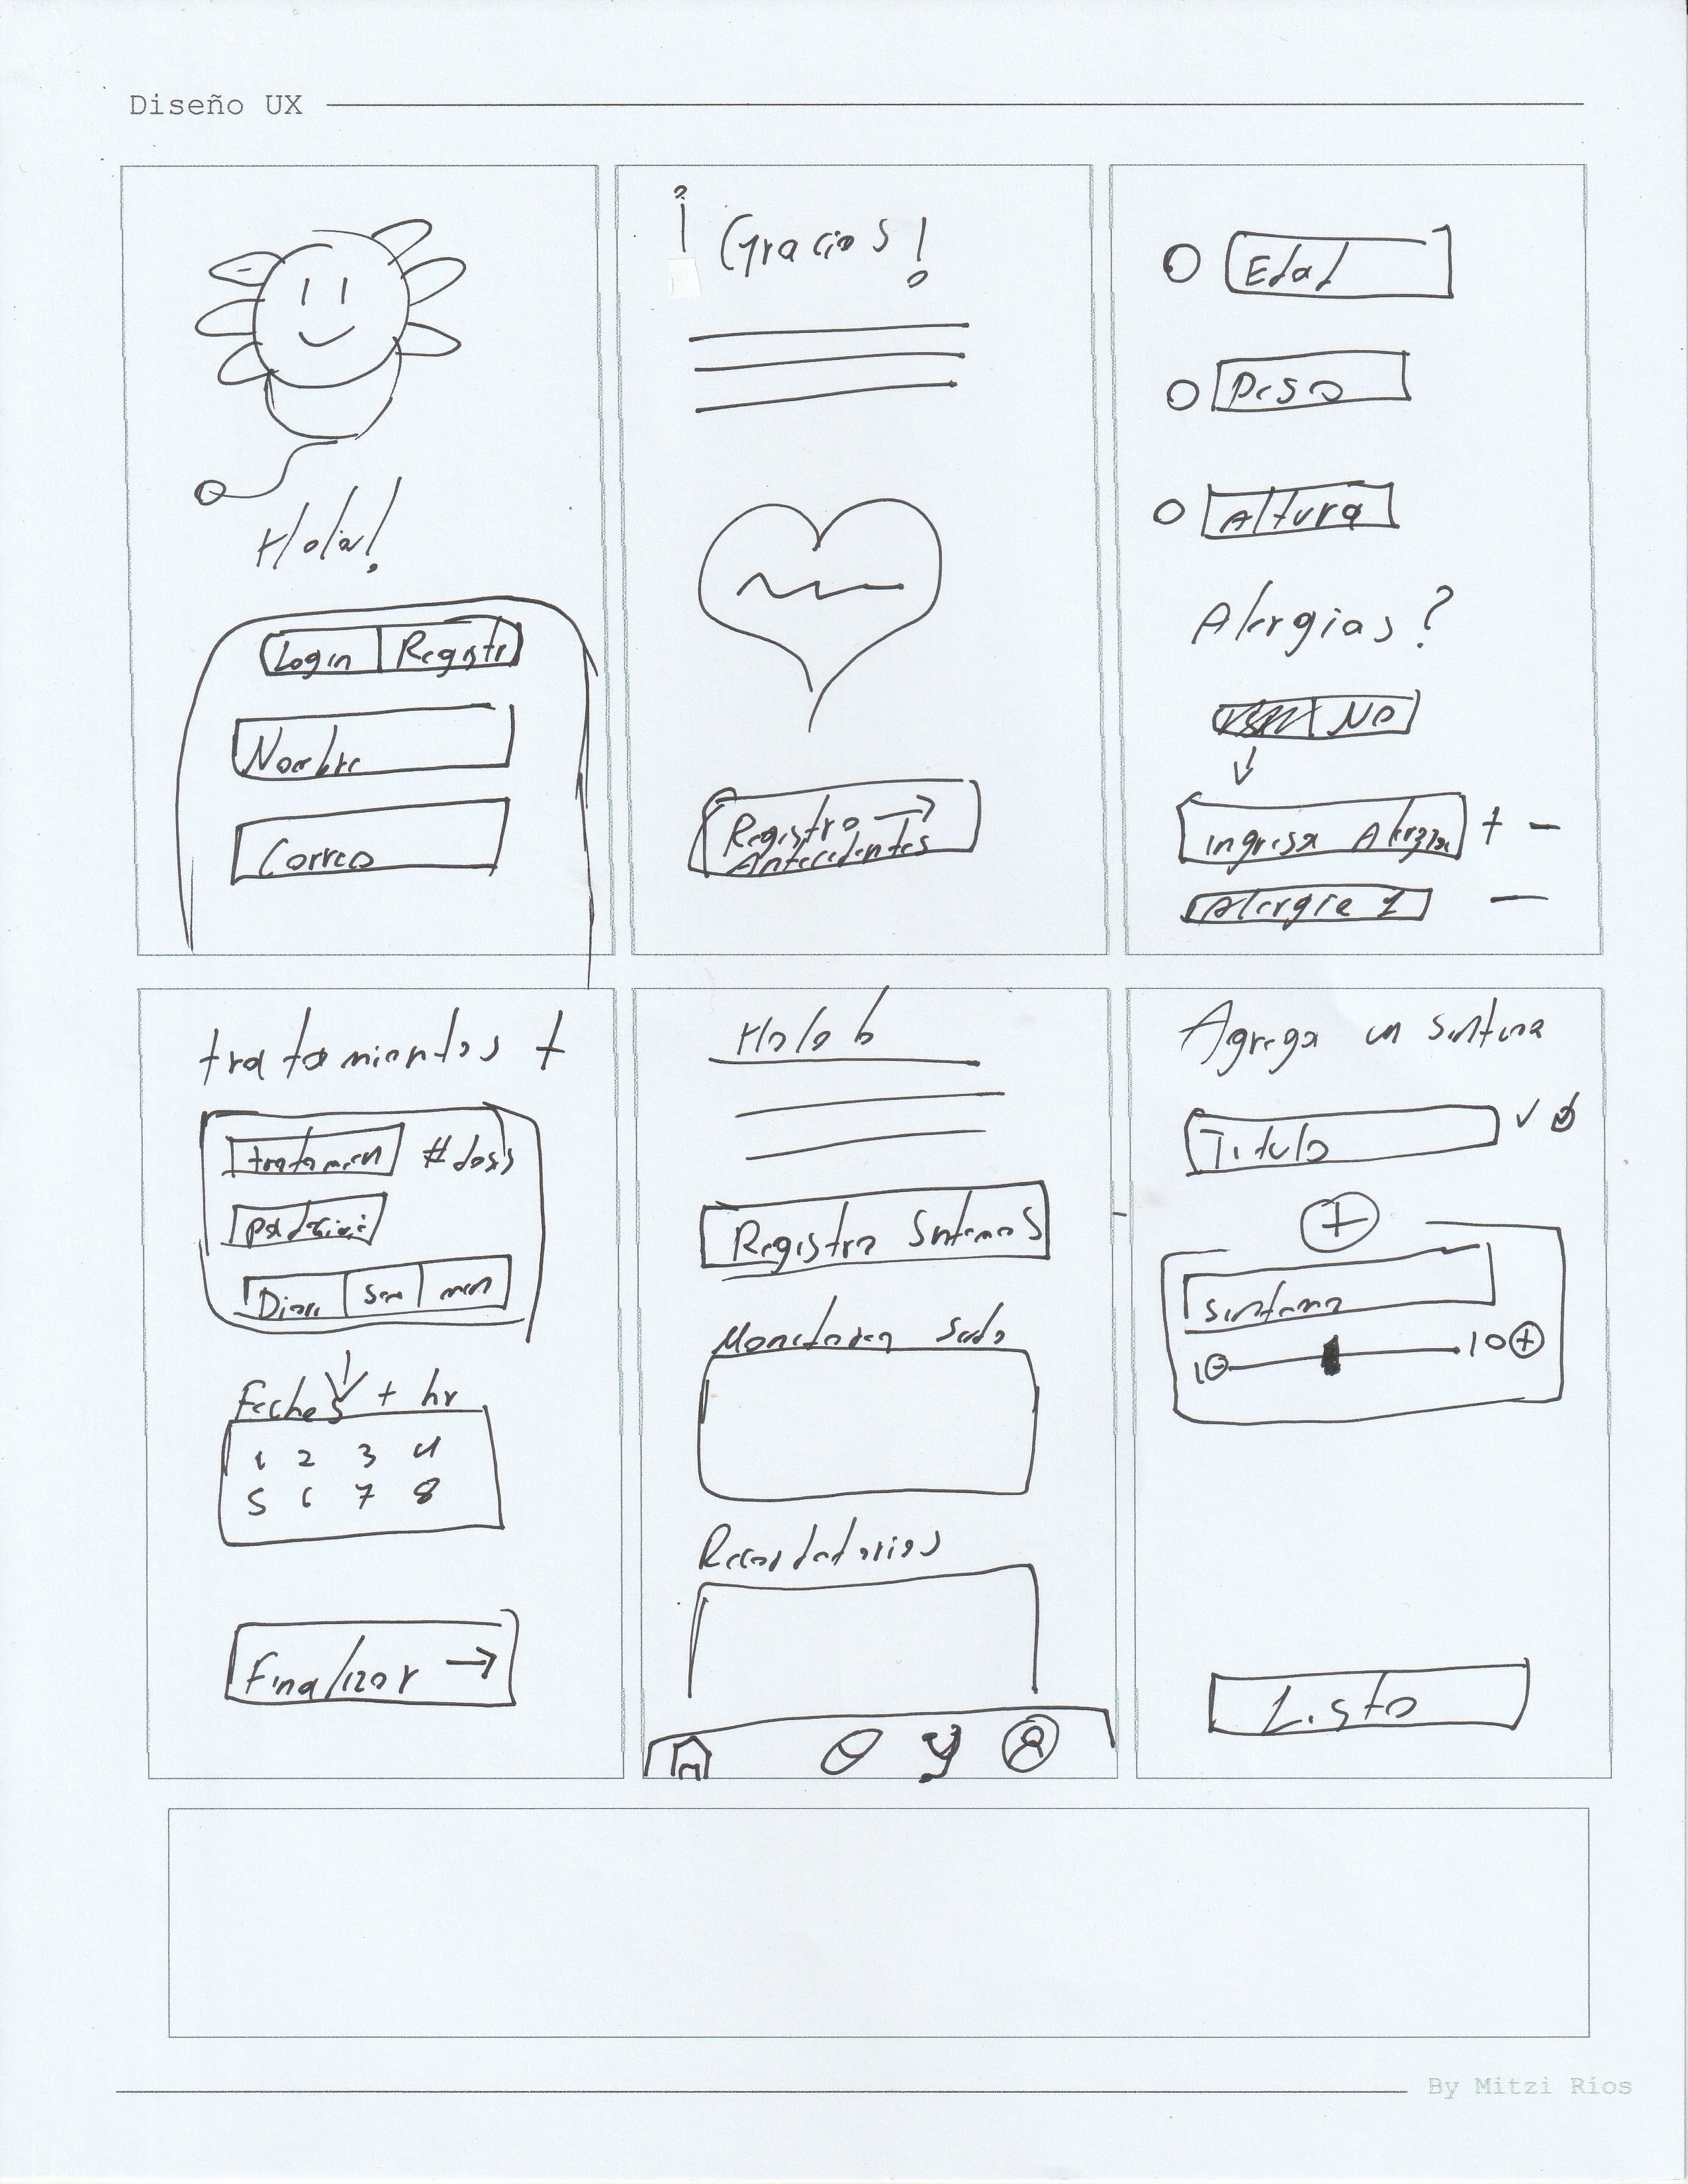 Diseño UX
Hola!
Login Registr
Nombre
Correo
¡Gracias!
Registro →
Antecedentes
Edad
Peso
Altura
Alergias?
No
Ingresa Alergia + -
Alergia 1 -
tratamientos +
tratamien #dosis
Diari Sem men
Fechas + hr
1 2 3 4
5 6 7 8
Finalizar →
Hola
Registro Sintomas
Recordatorios
Agrega un sintoma
Titulo
+
sintoma
1 - 10 +
Listo
By Mitzi Rios